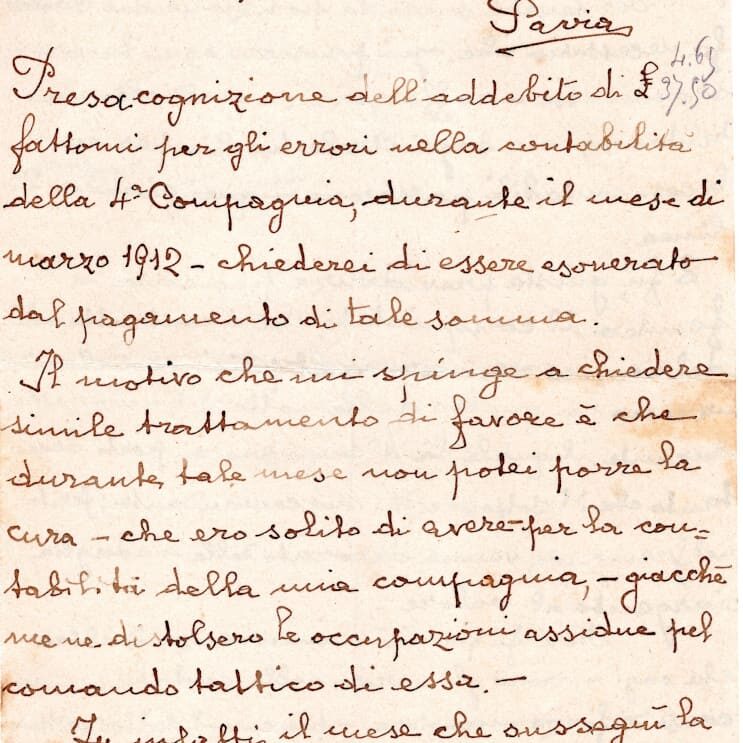 Pavia
Presa cognizione dell'addebito di £ 37.50
4.65
fattomi per gli errori nella contabilità
della 4ª Compagnia, durante il mese di
marzo 1912 - chiederei di essere esonerato
dal pagamento di tale somma.
Il motivo che mi spinge a chiedere
simile trattamento di favore è che
durante tale mese non potei porre la
cura - che ero solito di avere - per la con=
tabilità della mia compagnia, - giacchè
me ne distolsero le occupazioni assidue pel
comando tattico di essa. -
Fu infatti il mese che susseguì la